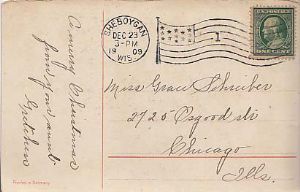 A merry Christmas
from your aunt
Gretchen
SHEBOYGAN
DEC 23
3-PM
1909
WIS.
1
ONE CENT
Miss Grace Schreiber
2725 Osgood str
Chicago
Ills.
Printed in Germany